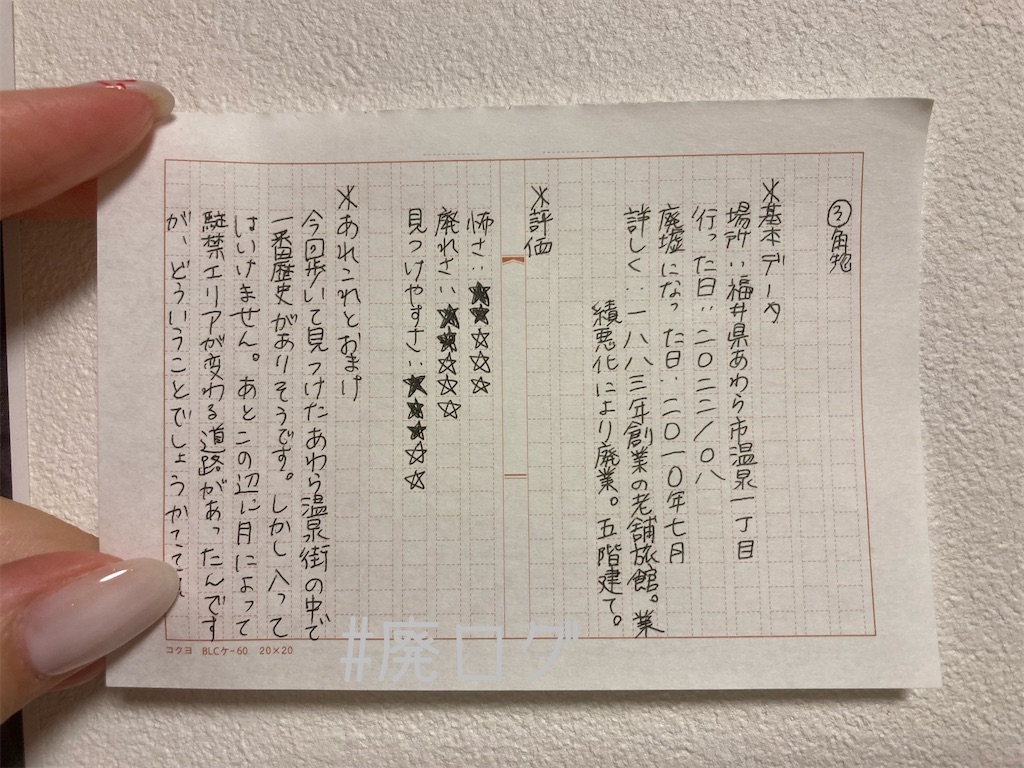 ③角惣
*基本データ
場所‥福井県あわら市温泉一丁目
行った日‥二〇二二/〇八
廃墟になった日‥二〇一〇年七月
詳しく‥一八八三年創業の老舗旅館。業
績悪化により廃業。五階建て。
*評価
怖さ‥★★☆☆☆
廃れさ‥★★☆☆☆
見つけやすさ‥★★★☆☆
*あれこれとおまけ
今回歩いて見つけたあわら温泉街の中で
一番歴史がありそうです。しかし入って
はいけません。あとこの辺に月によって
駐禁エリアが変わる道路があったんです
が、どういうことでしょうかててて
コクヨ BLCケ-60 20×20
#廃ログ